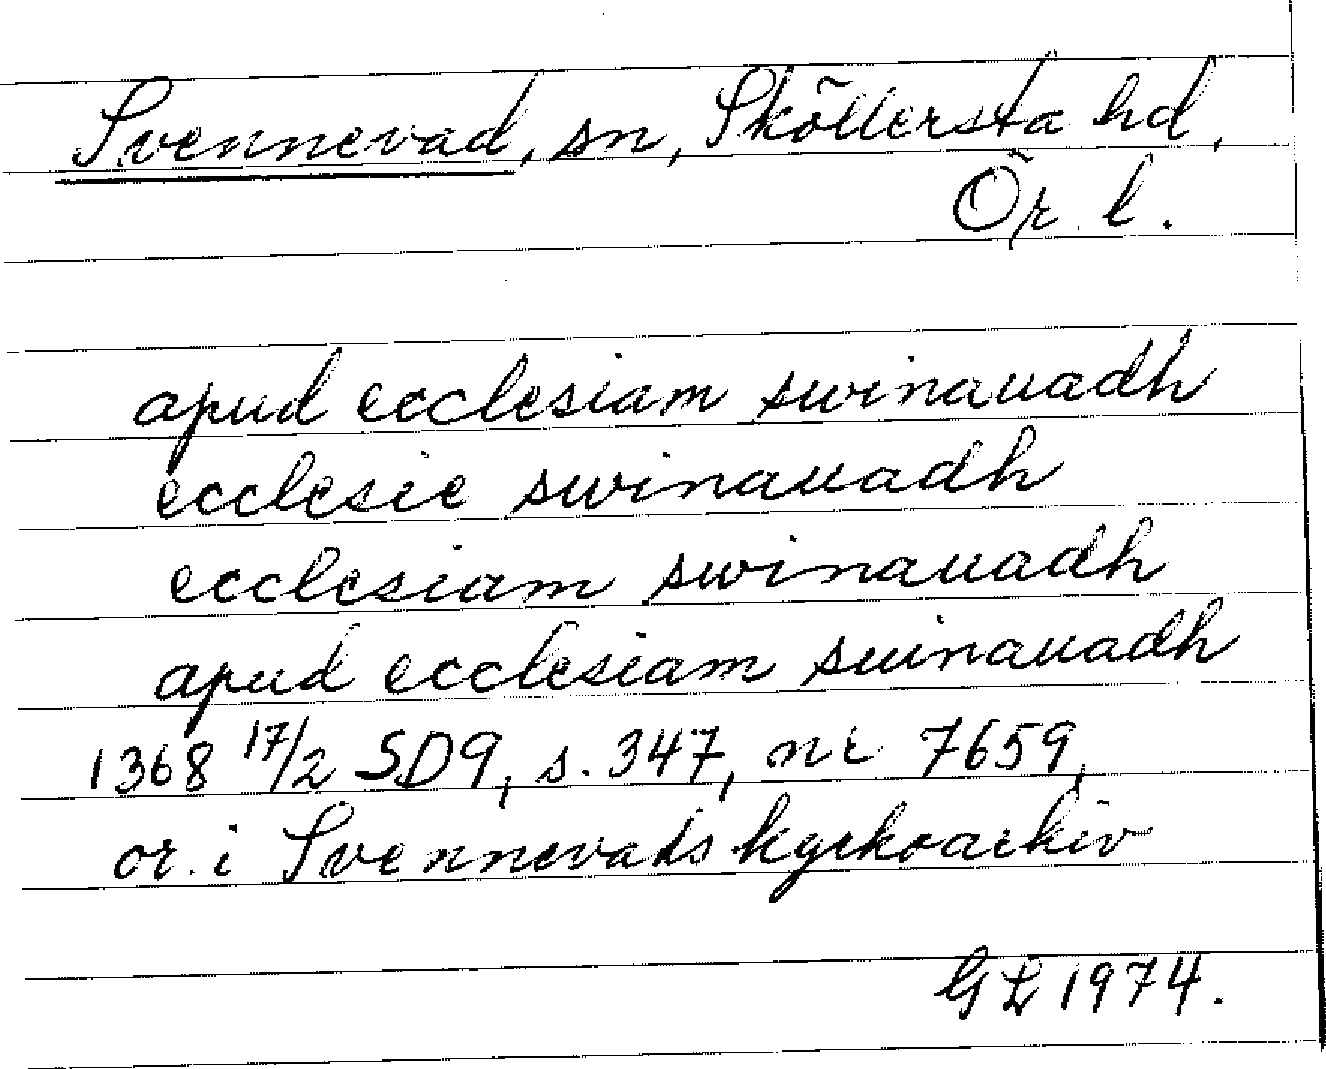 Svennevad, sn, Sköllersta hd,
Ör. l.
apud ecclesiam swinauadh
ecclesie swinauadh
ecclesiam swinauadh
apud ecclesiam suinauadh
1368 17/2 SD9, s. 347, nr 7659,
or. i Svennevads kyrkoarkiv
GL 1974.